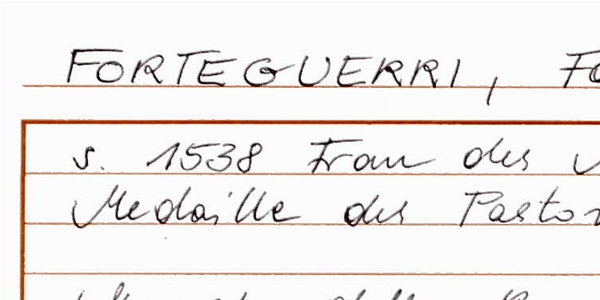 FORTEGUERRI, Fo
s. 1538 Frau des
Medaille des Pastor